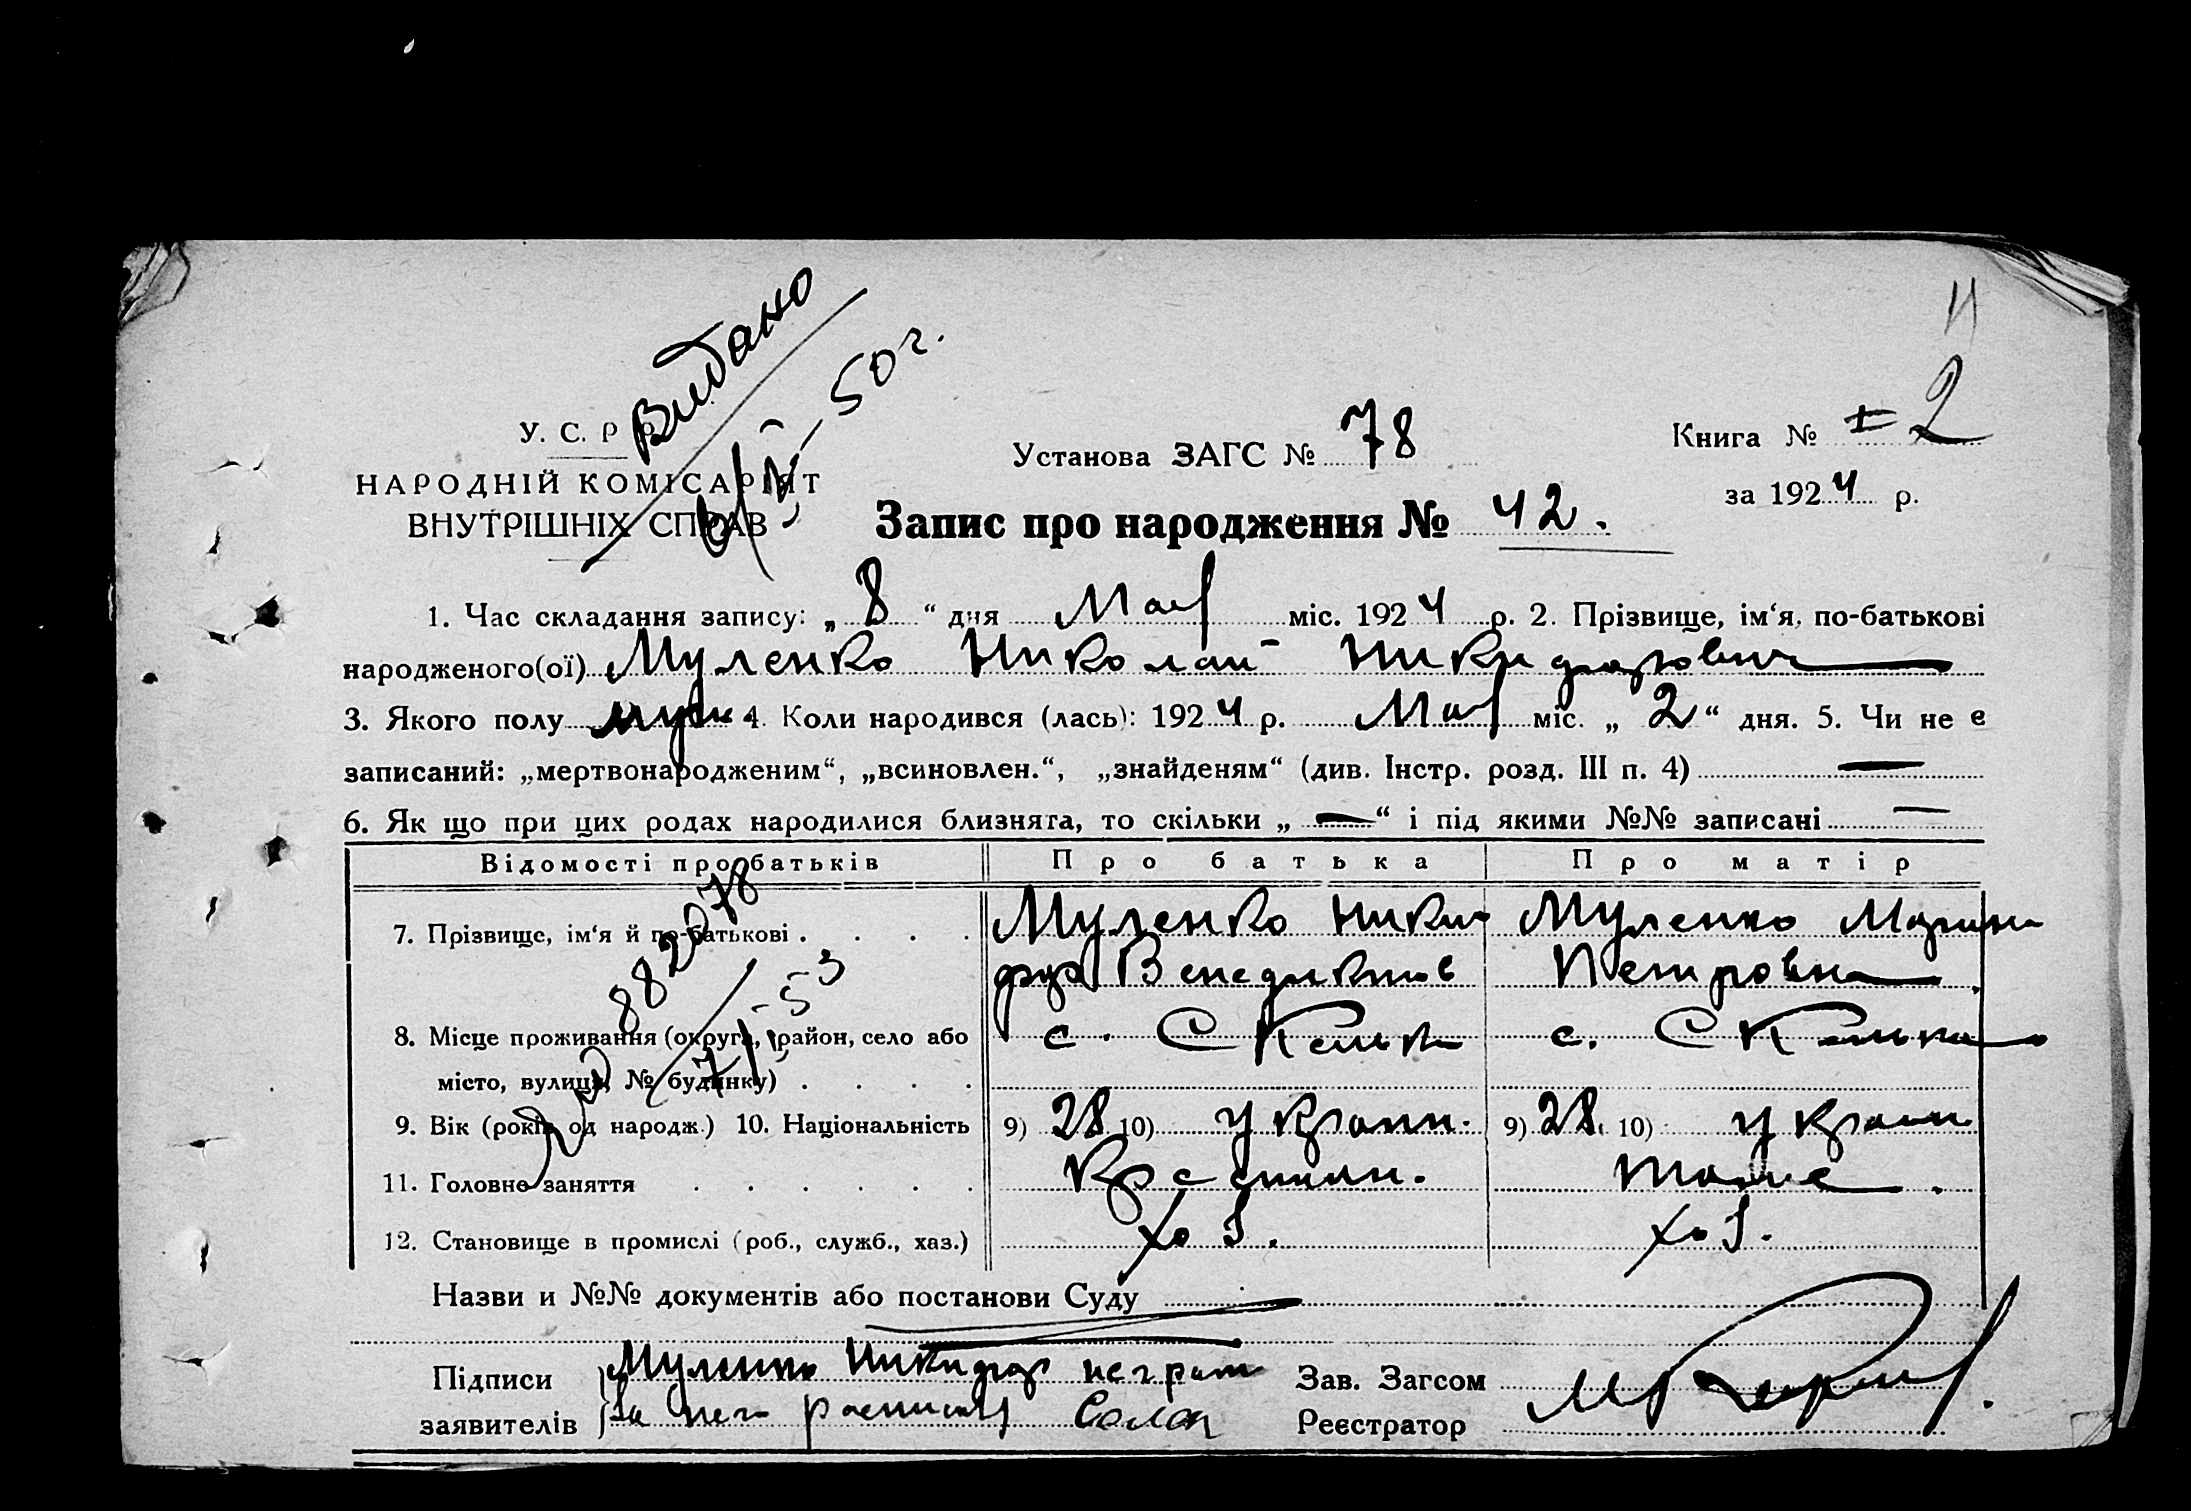 Видано
50 г.
У. С. Р. Р.
НАРОДНІЙ КОМІСАРІЯТ
ВНУТРІШНІХ СПРАВ
Установа ЗАГС № 78
Книга № 2
за 1924 р.
Запис про народження № 42.
1. Час складання запису: „ 8 “ дня Мая міс. 1924 р. 2. Прізвище, ім‘я, по-батькові
народженого(ої) Муленко Николай Никифорович
3. Якого полу муж 4. Коли народився (лась): 1924 р. Мая міс. „ 2 “ дня. 5. Чи не є
записаний: „мертвонародженим“, „всиновлен.“, „знайденям“ (див. Інстр. розд. III п. 4) —
6. Як що при цих родах народилися близнята, то скільки „ — “ і під якими №№ записані —
Відомості про батьків Про батька Про матір
7. Прізвище, ім‘я й по-батькові . . . . Муленко Ники- Муленко Марина
фор Венедиктов Петровна
8. Місце проживання (округа, район, село або с. Скельки с. Скелька
місто, вулиця, № будинку) . . . .
9. Вік (років од народж.) 10. Національність 9) 28 10) Украин. 9) 28 10) Украин
11. Головне заняття . . . . . . Крестьян. тоже
12. Становище в промислі (роб., служб., хаз.) хоз. хоз.
Назви и №№ документів або постанови Суду
Підписи Муленко Никифор неграм Зав. Загсом
заявителів За него расписался Реєстратор